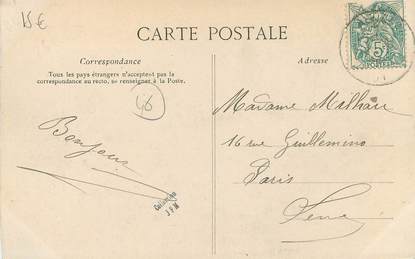 15 €
CARTE POSTALE
Correspondance
Tous les pays étrangers n'acceptent pas la
correspondance au recto, se renseigner à la Poste.
46
Bonjour
Collection
JPM
Adresse
5c
POSTES
Madame Milhau
16 rue Guillemino
Paris
Seine